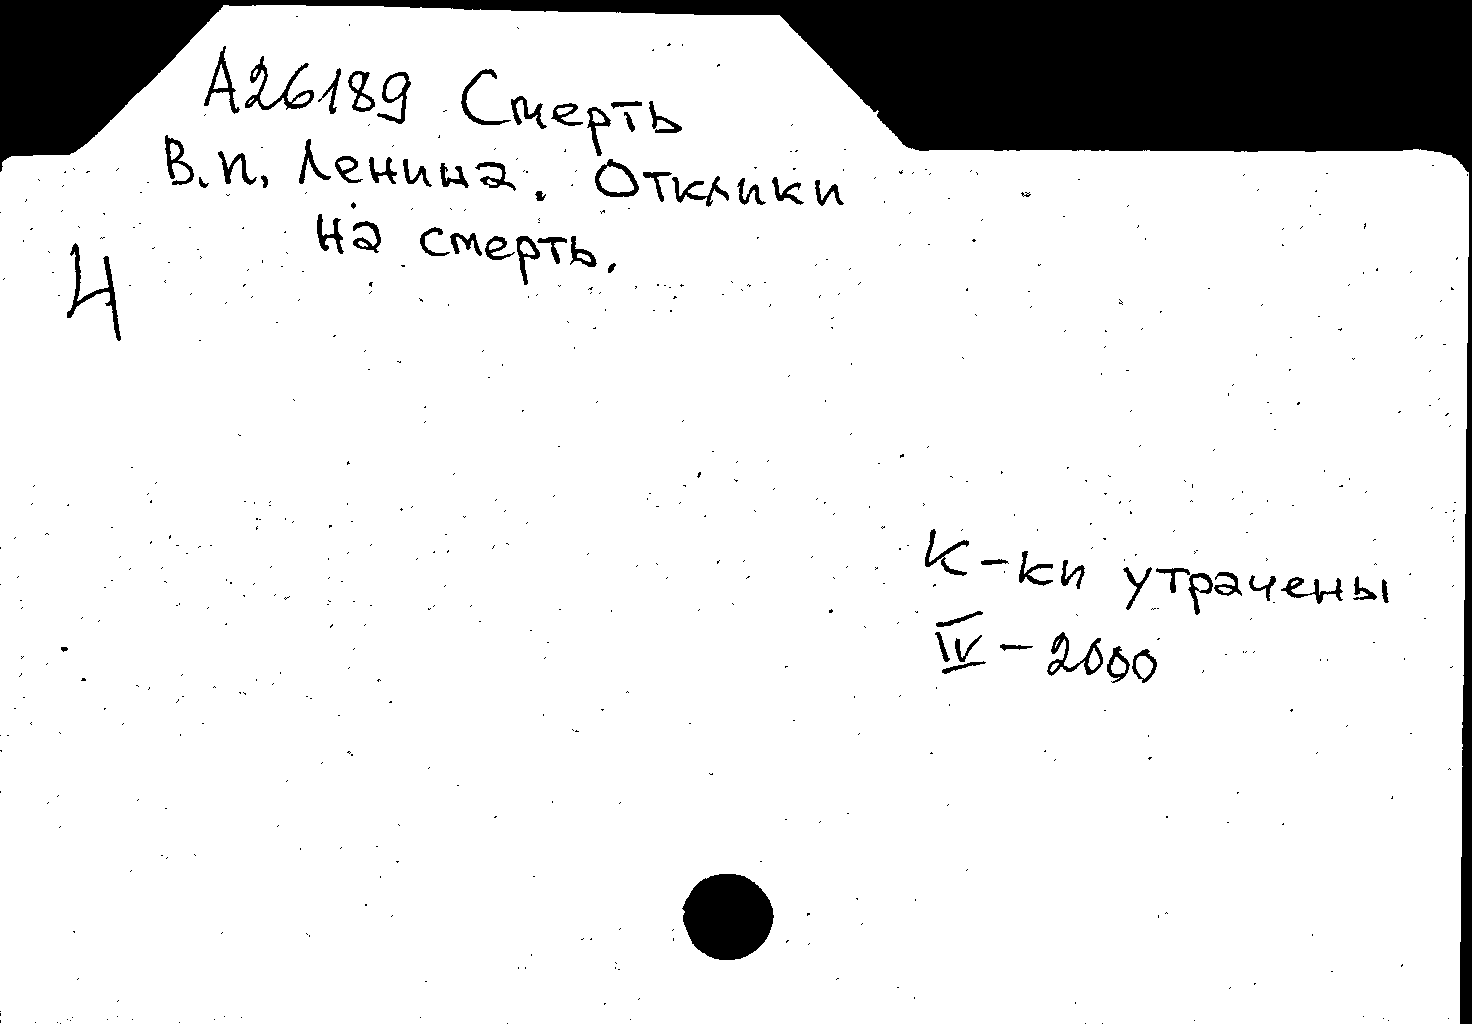 А26189 Смерть
В.И. Ленина. Отклики
на смерть.
4
К-ки утрачены
IV - 2000